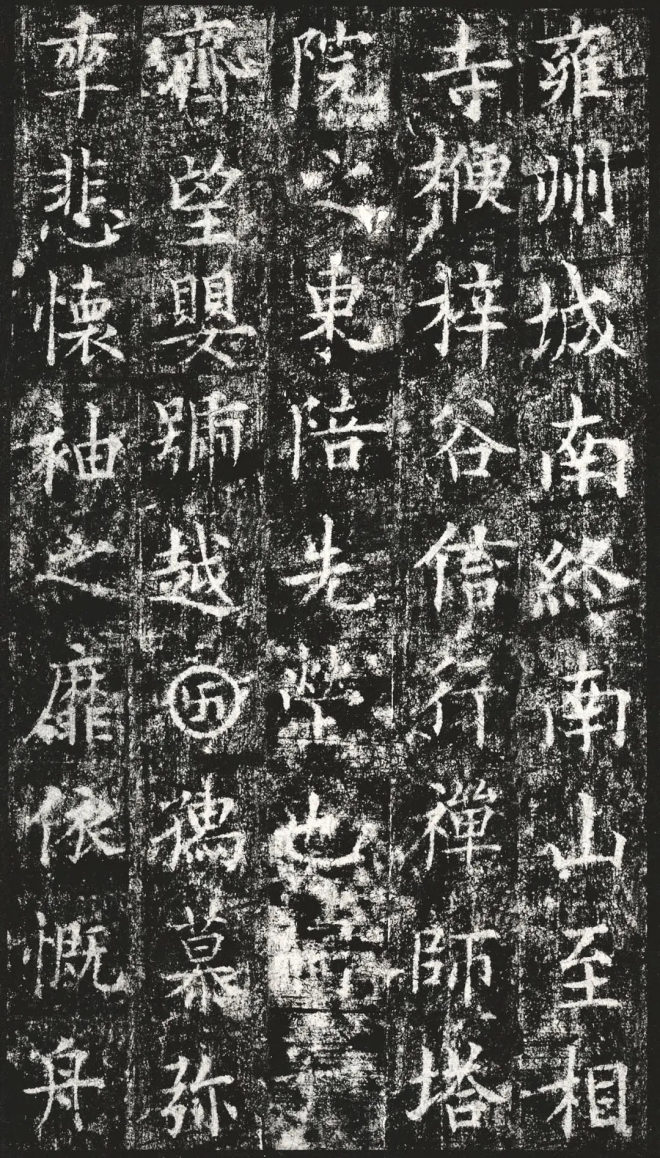 雍州城南終南山至相
寺楩梓谷信行禪師塔
院之東陪先塋也
齊望嬰號越卍鶴慕弥
率悲懷袖之靡依慨舟